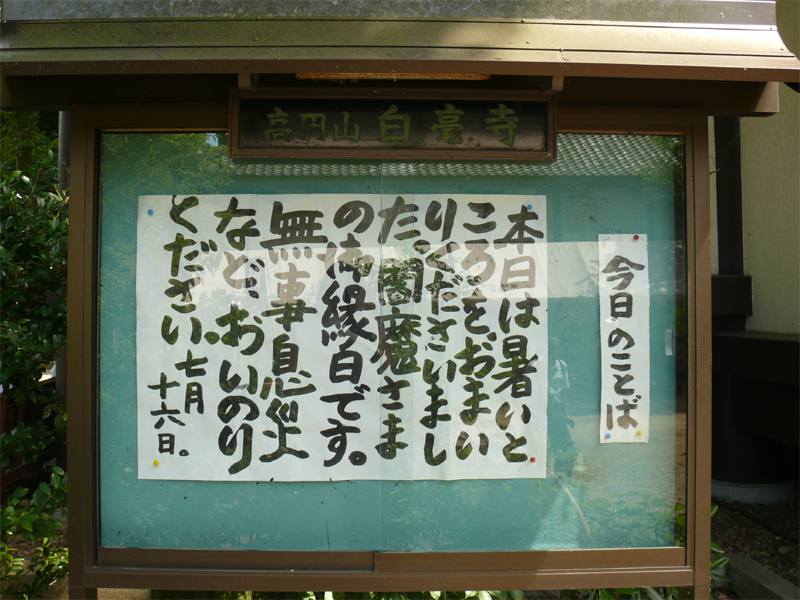 高円山白毫寺
今日のことば
本日は暑いと
ころをおまい
りくださいまし
た。閻魔さま
の御縁日です。
無事息災
など、おいのり
ください。七月
十六日。